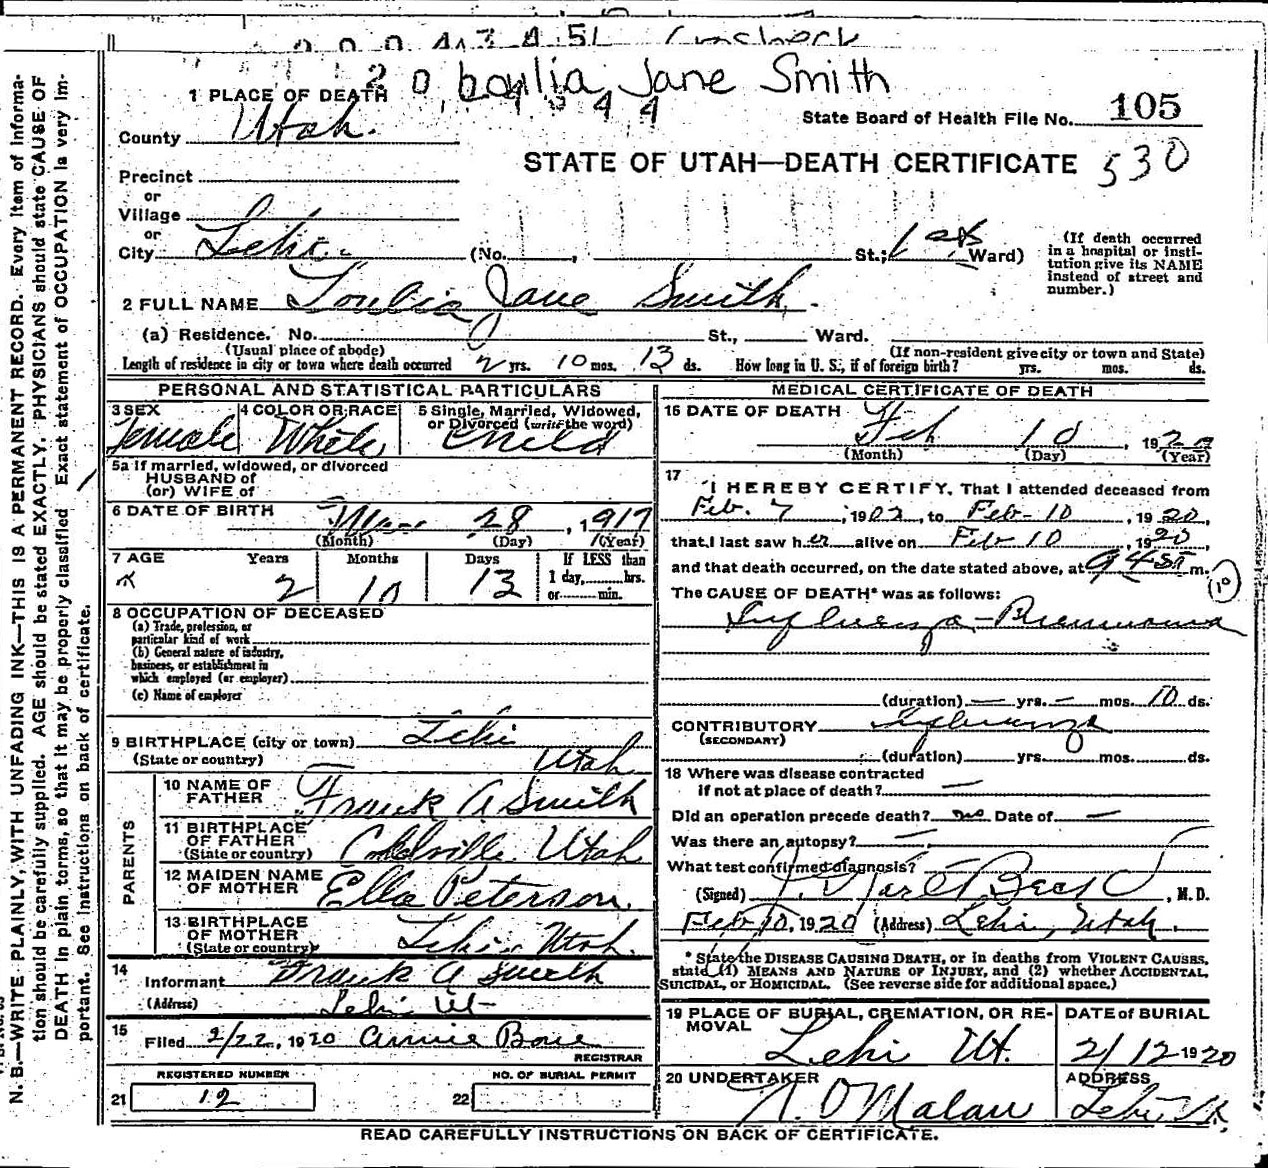 Jane Smith
1 PLACE OF DEATH
County Utah.
State Board of Health File No. 105
STATE OF UTAH—DEATH CERTIFICATE 530
Precinct
or
Village
or
City Lehi (No. , St.; 1st Ward)
(If death occurred in a hospital or insti-
tution give its NAME instead of street and number.)
2 FULL NAME Jane Smith.
(a) Residence. No. St., Ward.
(Usual place of abode) (If non-resident give city or town and State)
Length of residence in city or town where death occurred 2 yrs. 10 mos. 13 ds. How long in U. S., if of foreign birth? yrs. mos. ds.
PERSONAL AND STATISTICAL PARTICULARS
3 SEX Female
4 COLOR OR RACE White
5 Single, Married, Widowed, or Divorced (write the word) Child
5a If married, widowed, or divorced
HUSBAND of
(or) WIFE of
6 DATE OF BIRTH Mar 28, 1917
(Month) (Day) (Year)
7 AGE Years Months Days If LESS than
2 10 13 1 day, hrs.
or min.
8 OCCUPATION OF DECEASED
(a) Trade, profession, or
particular kind of work
(b) General nature of industry,
business, or establishment in
which employed (or employer)
(c) Name of employer
9 BIRTHPLACE (city or town) Lehi
(State or country) Utah
PARENTS
10 NAME OF FATHER Frank A Smith
11 BIRTHPLACE OF FATHER (State or country) Utah
12 MAIDEN NAME OF MOTHER Ella Peterson
13 BIRTHPLACE OF MOTHER (State or country) Lehi Utah.
14 Informant Frank A Smith
(Address) Lehi Ut
15 Filed 2/22, 1920 Annie
REGISTRAR
REGISTERED NUMBER NO. OF BURIAL PERMIT
21 12 22
MEDICAL CERTIFICATE OF DEATH
16 DATE OF DEATH Feb 10, 1920
(Month) (Day) (Year)
17 I HEREBY CERTIFY, That I attended deceased from
Feb. 7, 19 , to Feb-10, 1920,
that I last saw her alive on Feb 10, 1920,
and that death occurred, on the date stated above, at 9 45 m.
The CAUSE OF DEATH* was as follows:
Influenza-Pneumonia
10
(duration) — yrs. — mos. 10 ds.
CONTRIBUTORY Influenza
(SECONDARY)
(duration) yrs. mos. ds.
18 Where was disease contracted
if not at place of death? —
Did an operation precede death? no Date of —
Was there an autopsy? —
What test confirmed diagnosis?
(Signed) , M. D.
Feb 10, 1920 (Address) Lehi, Utah
* State the DISEASE CAUSING DEATH, or in deaths from VIOLENT CAUSES,
state (1) MEANS AND NATURE OF INJURY, and (2) whether ACCIDENTAL,
SUICIDAL, or HOMICIDAL. (See reverse side for additional space.)
19 PLACE OF BURIAL, CREMATION, OR RE-
MOVAL Lehi Ut.
DATE of BURIAL
2/12 1920
20 UNDERTAKER
ADDRESS
Lehi Ut.
READ CAREFULLY INSTRUCTIONS ON BACK OF CERTIFICATE.
N. B.—WRITE PLAINLY, WITH UNFADING INK—THIS IS A PERMANENT RECORD. Every item of informa-
tion should be carefully supplied. AGE should be stated EXACTLY. PHYSICIANS should state CAUSE OF
DEATH in plain terms, so that it may be properly classified. Exact statement of OCCUPATION is very im-
portant. See instructions on back of certificate.